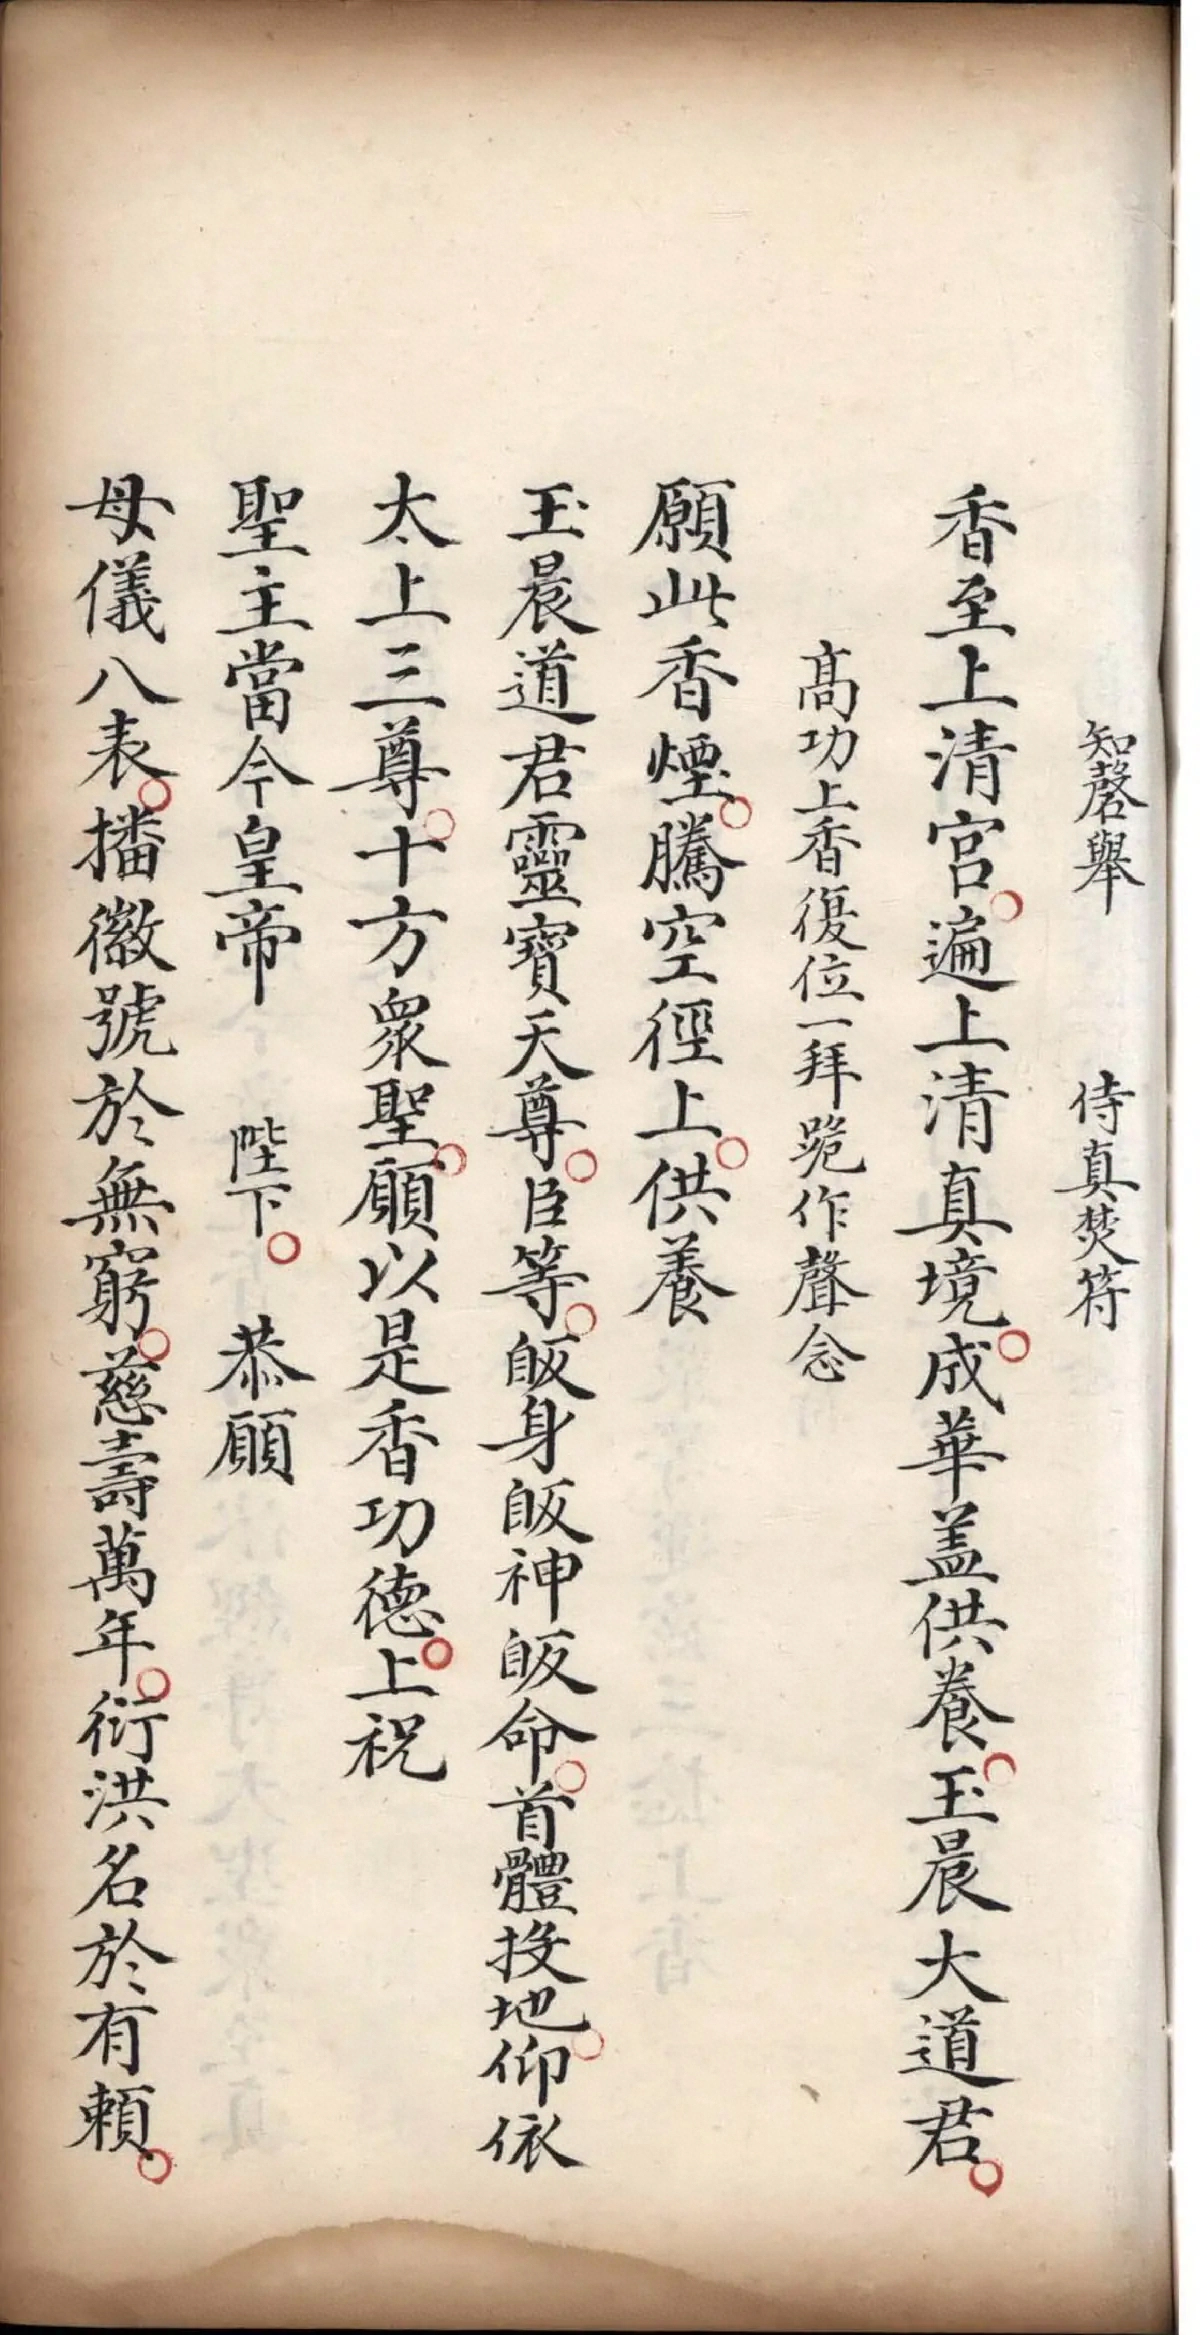 知磬舉　侍真焚符
香至上清宮○遍上清真境○成華盖供養○玉晨大道君○
高功上香復位一拜跪作聲念
願此香煙○騰空徑上○供養
玉晨道君靈寶天尊○臣等○皈身皈神皈命○首體投地○仰依
太上三尊○十方衆聖○願以是香功德○上祝
聖主當今皇帝　陛下○　恭願
母儀八表○播徽號於無窮○慈壽萬年○衍洪名於有賴○